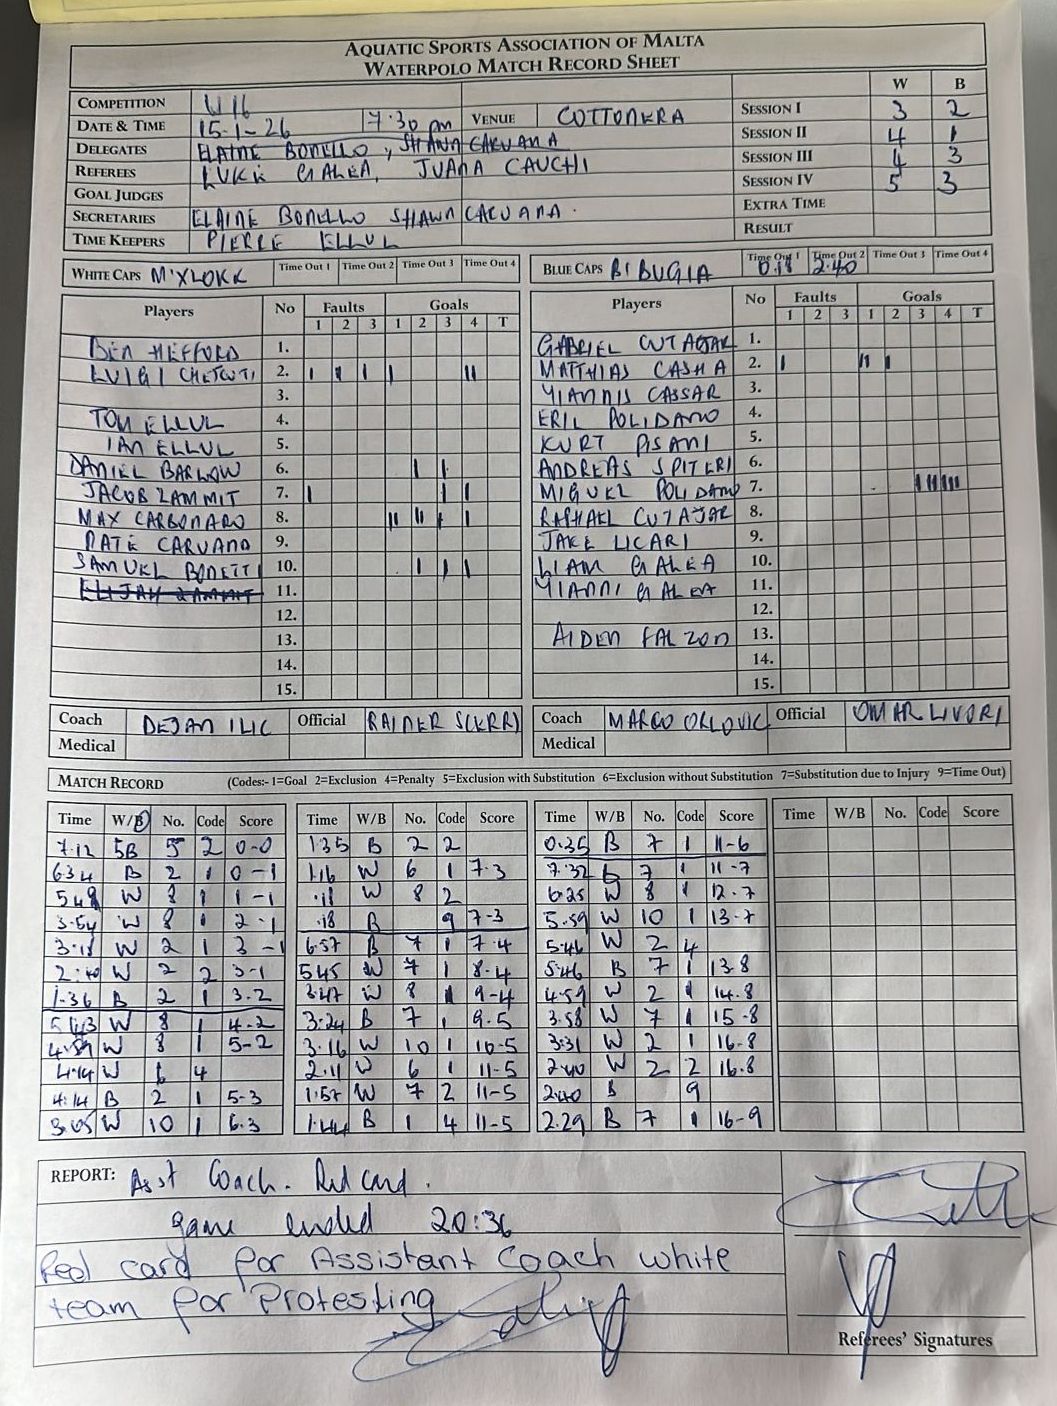 AQUATIC SPORTS ASSOCIATION OF MALTA
WATERPOLO MATCH RECORD SHEET
COMPETITION U16
DATE & TIME 15-1-26 7:30 pm VENUE COTTONERA
DELEGATES ELAINE BONELLO, SHAWN CARUANA
REFEREES LUKE GALEA, JUANA CAUCHI
GOAL JUDGES
SECRETARIES ELAINE BONELLO SHAWN CARUANA.
TIME KEEPERS PIERRE ELLUL
W B
SESSION I 3 2
SESSION II 4 1
SESSION III 4 3
SESSION IV 5 3
EXTRA TIME
RESULT
WHITE CAPS M'XLOKK Time Out 1 Time Out 2 Time Out 3 Time Out 4
Players No Faults Goals
1 2 3 1 2 3 4 T
BEN HEFFORD 1.
LUIGI CHETCUTI 2. I II I I II
3.
TOM ELLUL 4.
IAN ELLUL 5.
DANIEL BARLOW 6. I I
JACOB ZAMMIT 7. I I I
MAX CARBONARO 8. II II I I
NATE CARUANA 9.
SAMUEL BONETTI 10. I I I
ELIJAH ZAMMIT 11.
12.
13.
14.
15.
Coach DEJAN ILIC Official RAINER SCERRI
Medical
BLUE CAPS B'BUGIA Time Out 1 0.18 Time Out 2 2.40 Time Out 3 Time Out 4
Players No Faults Goals
1 2 3 1 2 3 4 T
GABRIEL CUTAJAR 1.
MATTHIAS CASHA 2. I II I
YIANNIS CASSAR 3.
ERIL POLIDANO 4.
KURT PISANI 5.
ANDREAS SPITERI 6.
MIGUEL POLIDANO 7. III IIII
RAPHAEL CUTAJAR 8.
JAKE LICARI 9.
LIAM GALEA 10.
YIANNI GALEA 11.
12.
AIDEN FALZON 13.
14.
15.
Coach MARCO ORLOVIC Official OMAR LIVORI
Medical
MATCH RECORD (Codes:- 1=Goal 2=Exclusion 4=Penalty 5=Exclusion with Substitution 6=Exclusion without Substitution 7=Substitution due to Injury 9=Time Out)
Time W/B No. Code Score
7.12 5B 5 2 0-0
6.34 B 2 1 0-1
5.48 W 8 1 1-1
3.54 W 8 1 2-1
3.18 W 2 1 3-1
2.40 W 2 2 3-1
1.36 B 2 1 3.2
5.43 W 8 1 4-2
4.59 W 8 1 5-2
4.14 W 6 4
4.14 B 2 1 5-3
3.05 W 10 1 6.3
Time W/B No. Code Score
1.35 B 2 2
1.16 W 6 1 7-3
.18 W 8 2
.18 B 9 7-3
6.57 B 7 1 7.4
5.45 W 7 1 8-4
3.47 W 8 1 9-4
3:24 B 7 1 9.5
3.16 W 10 1 10-5
2.11 W 6 1 11-5
1.57 W 7 2 11-5
1.44 B 1 4 11-5
Time W/B No. Code Score
0.35 B 7 1 11-6
7.32 b 7 1 11-7
6.25 W 8 1 12.7
5.59 W 10 1 13-7
5.46 W 2 4
5.46 B 7 1 13.8
4.59 W 2 1 14.8
3.58 W 7 1 15-8
3.31 W 2 1 16-8
2.40 W 2 2 16.8
2.40 B 9
2.29 B 7 1 16-9
Time W/B No. Code Score
REPORT: Asst Coach. Red card.
game ended 20:36
Red card for Assistant Coach white
team for Protesting
Referees' Signatures